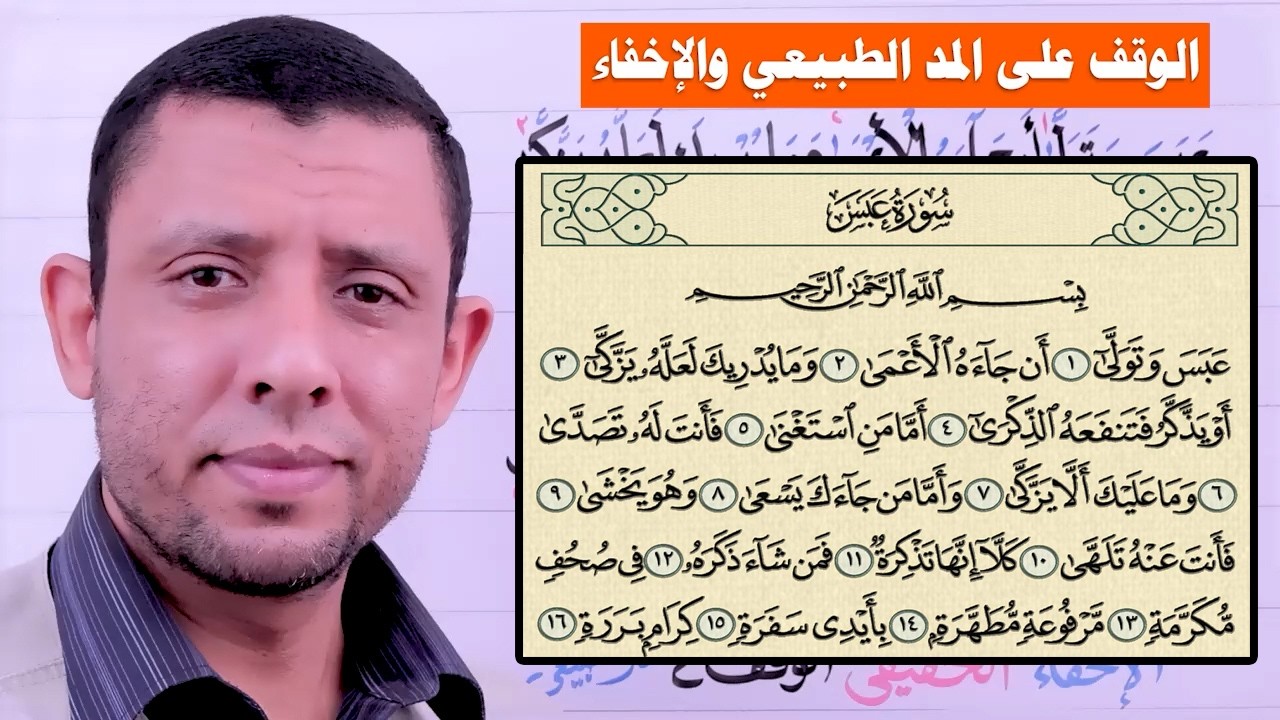 الوقف على المد الطبيعي والإخفاء
سُورَةُ عَبَسَ
بِسْمِ ٱللَّهِ ٱلرَّحْمَٰنِ ٱلرَّحِيمِ
عَبَسَ وَتَوَلَّىٰٓ ١ أَن جَآءَهُ ٱلْأَعْمَىٰ ٢ وَمَا يُدْرِيكَ لَعَلَّهُۥ يَزَّكَّىٰٓ ٣
أَوْ يَذَّكَّرُ فَتَنفَعَهُ ٱلذِّكْرَىٰٓ ٤ أَمَّا مَنِ ٱسْتَغْنَىٰ ٥ فَأَنتَ لَهُۥ تَصَدَّىٰ
٦ وَمَا عَلَيْكَ أَلَّا يَزَّكَّىٰ ٧ وَأَمَّا مَن جَآءَكَ يَسْعَىٰ ٨ وَهُوَ يَخْشَىٰ ٩
فَأَنتَ عَنْهُ تَلَهَّىٰ ١٠ كَلَّآ إِنَّهَا تَذْكِرَةٌ ١١ فَمَن شَآءَ ذَكَرَهُۥ ١٢ فِى صُحُفٍ
مُّكَرَّمَةٍ ١٣ مَّرْفُوعَةٍ مُّطَهَّرَةٍۭ ١٤ بِأَيْدِى سَفَرَةٍ ١٥ كِرَامٍۭ بَرَرَةٍ ١٦
الإخفاء الحقيقي الوقف